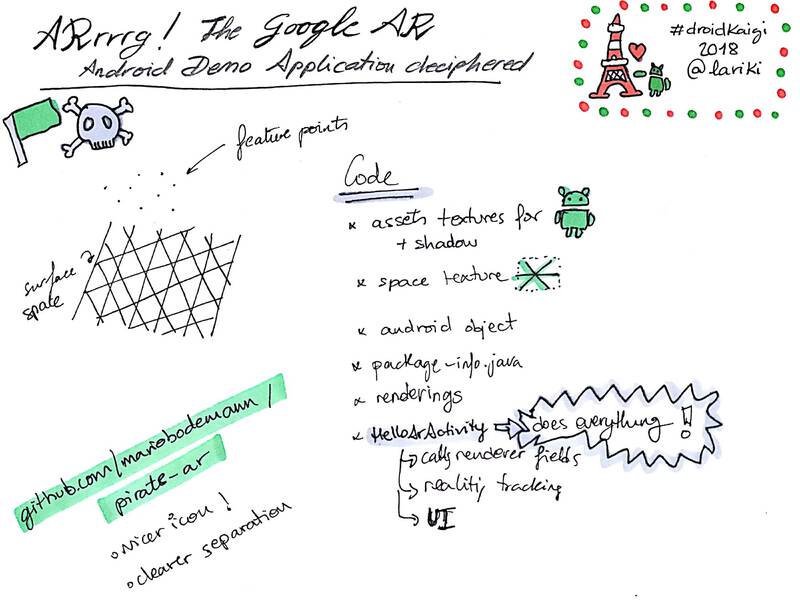 ARrrrg! The Google AR
Android Demo Application deciphered
#droidKaigi
2018
@lariki
feature points
surface
space
Code
* assets textures for
+ shadow
* space texture
* android object
* package-info.java
* renderings
* HelloArActivity => does everything!
calls renderer fields
reality tracking
UI
github.com/mariobodemann/
pirate-ar
o Nicer icon!
o clearer separation